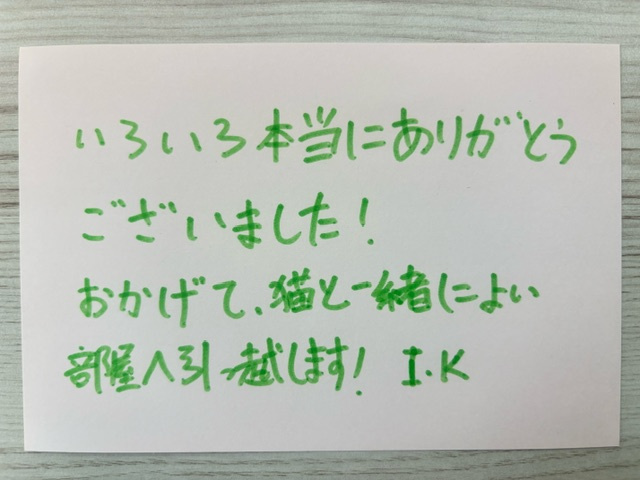 いろいろ本当にありがとう
ございました!
おかげて、猫と一緒によい
部屋へ引っ越します! I.K